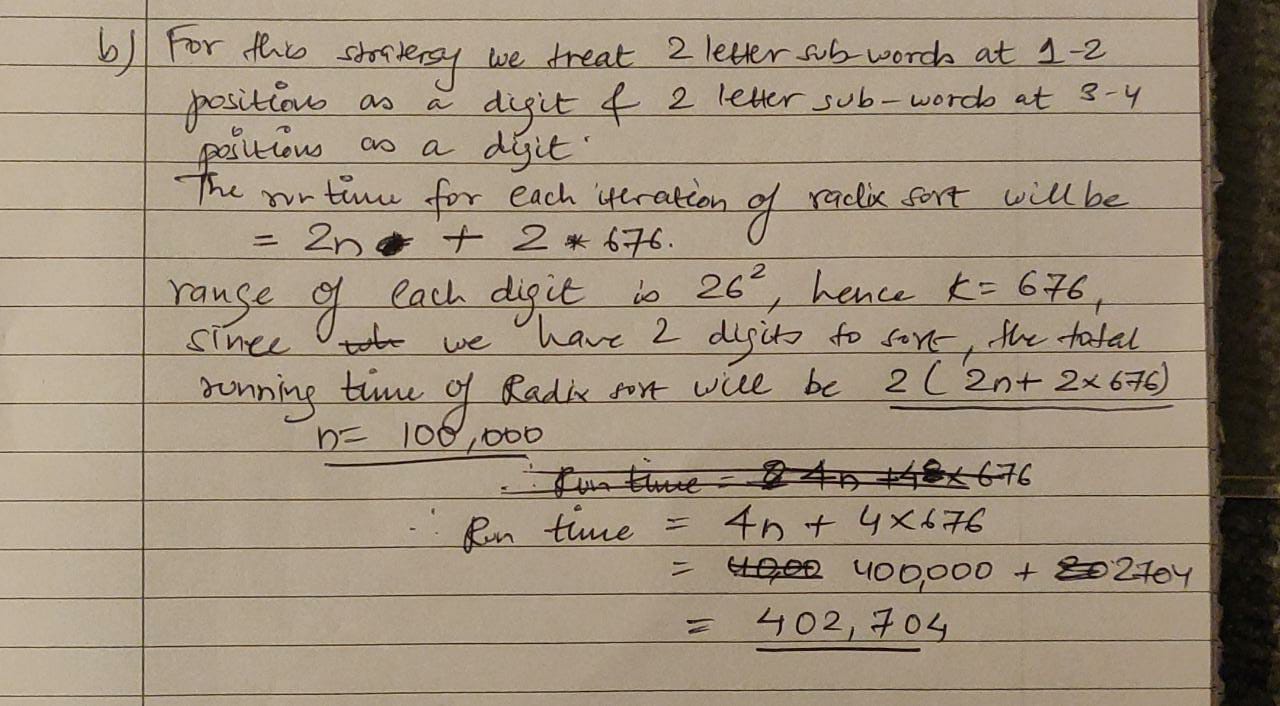 b) For this stratergy we treat 2 letter sub-words at 1-2
positions as a digit & 2 letter sub-words at 3-4
positions as a digit.
The run time for each iteration of radix sort will be
= 2n + 2 * 676.
range of each digit is 26², hence K = 676,
since we have 2 digits to sort, the total
running time of Radix sort will be 2 ( 2n + 2 x 676)
n = 100,000
∴ Run time = 4n + 48 x 676
∴ Run time = 4n + 4 x 676
= 400,000 + 2704
= 402,704